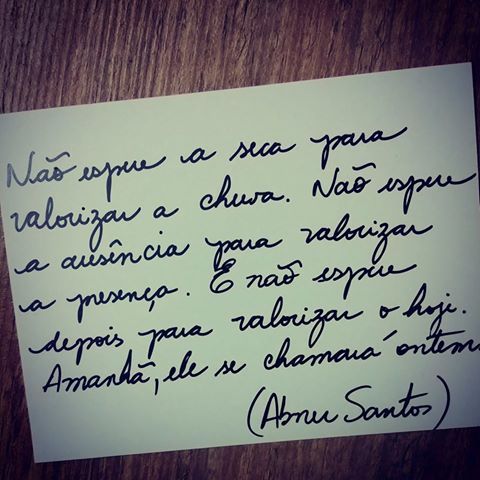 Não espere a seca para
valorizar a chuva. Não espere
a ausência para valorizar
a presença. E não espere
depois para valorizar o hoje.
Amanhã, ele se chamará ontem.
(Abner Santos)